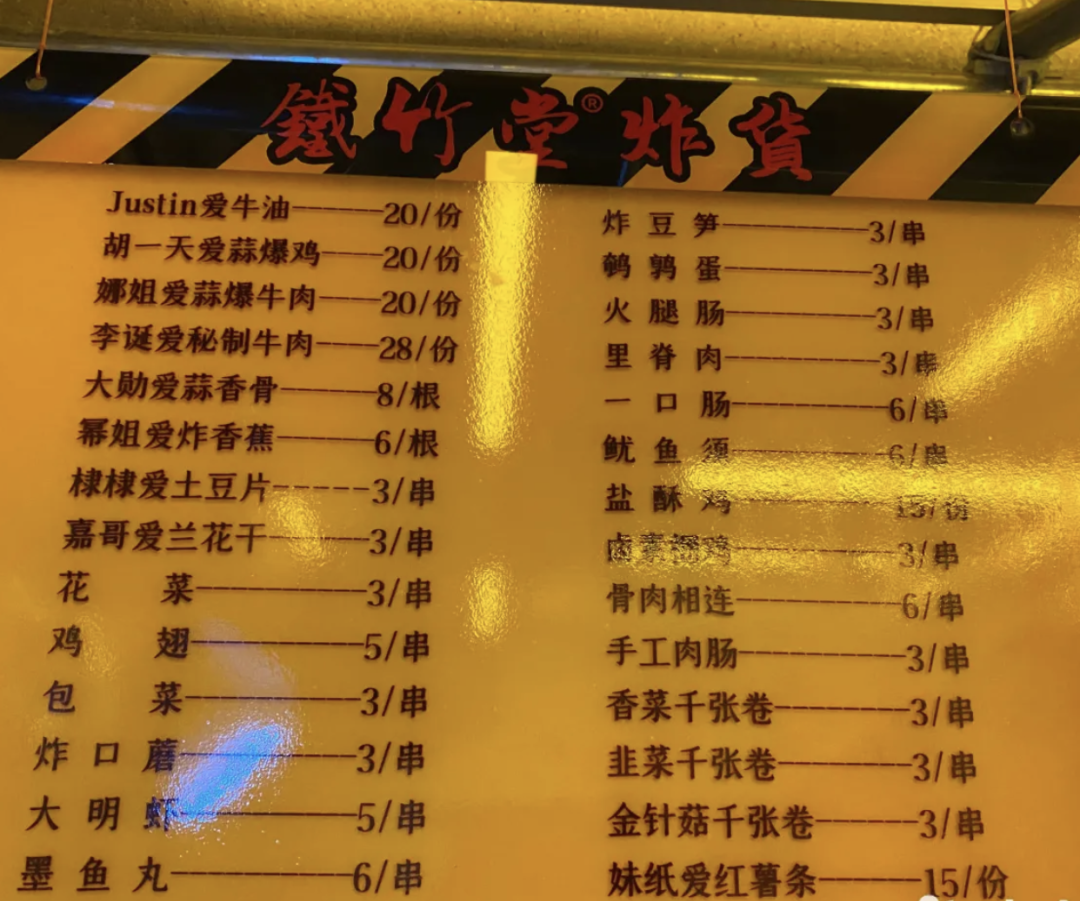 鐵竹堂®炸貨
Justin爱牛油——20/份
胡一天爱蒜爆鸡——20/份
娜姐爱蒜爆牛肉——20/份
李诞爱秘制牛肉——28/份
大勋爱蒜香骨——8/根
幂姐爱炸香蕉——6/根
棣棣爱土豆片------3/串
嘉哥爱兰花干——3/串
花菜——3/串
鸡翅——5/串
包菜——3/串
炸口蘑——3/串
大明虾——5/串
墨鱼丸——6/串
炸豆笋——3/串
鹌鹑蛋——3/串
火腿肠——3/串
里脊肉——3/串
一口肠——6/串
鱿鱼须——6/串
盐酥鸡——15/份
卤素鸡——3/串
骨肉相连——6/串
手工肉肠——3/串
香菜千张卷——3/串
韭菜千张卷——3/串
金针菇千张卷——3/串
妹纸爱红薯条——15/份